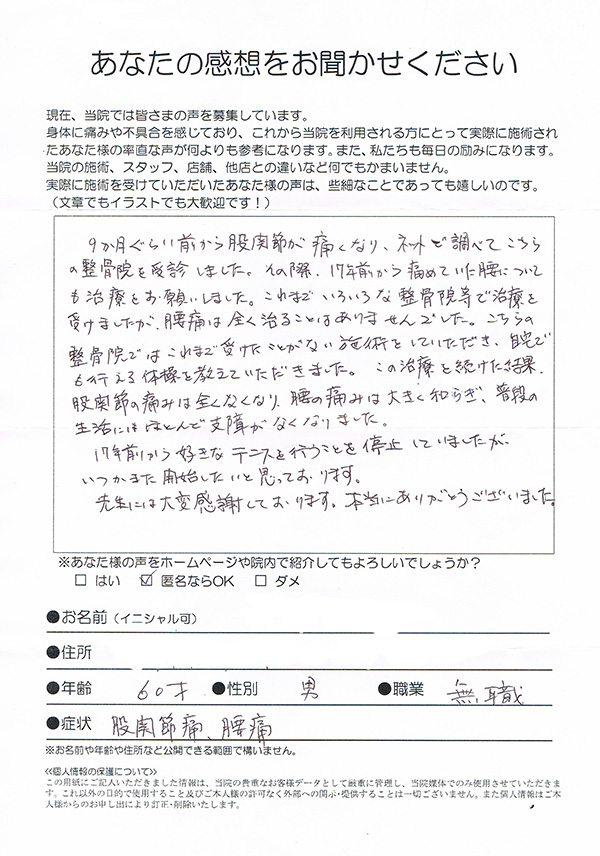 あなたの感想をお聞かせください
現在、当院では皆さまの声を募集しています。
身体に痛みや不具合を感じており、これから当院を利用される方にとって実際に施術され
たあなた様の率直な声が何よりも参考になります。また、私たちも毎日の励みになります。
当院の施術、スタッフ、店舗、他店との違いなど何でもかまいません。
実際に施術を受けていただいたあなた様の声は、些細なことであっても嬉しいのです。
（文章でもイラストでも大歓迎です！）
9か月ぐらい前から股関節が痛くなり、ネットで調べてこちら
の整骨院を受診しました。その際、17年前から痛めていた腰について
も治療をお願いしました。これまでいろいろな整骨院等で治療を
受けましたが、腰痛は全く治ることはありませんでした。こちらの
整骨院ではこれまで受けたことがない施術をしていただき、自宅で
も行える体操を教えていただきました。この治療を続けた結果、
股関節の痛みは全くなくなり、腰の痛みは大きく和らぎ、普段の
生活にはほとんど支障がなくなりました。
17年前から好きなテニスを行うことを停止していましたが、
いつかまた開始したいと思っております。
先生には大変感謝しております。本当にありがとうございました。
※あなた様の声をホームページや院内で紹介してもよろしいでしょうか？
□ はい ☑ 匿名ならOK □ ダメ
●お名前（イニシャル可）
●住所
●年齢 60才 ●性別 男 ●職業 無職
●症状 股関節痛、腰痛
※お名前や年齢や住所など公開できる範囲で構いません。
≪個人情報の保護について≫
この用紙にご記入いただきました情報は、当院の貴重なお客様データとして厳重に管理し、当院媒体でのみ使用させていただきま
す。これ以外の目的で使用すること及びご本人様の許可なく外部への開示・提供することは一切ございません。また個人情報はご本
人様からのお申し出により訂正・削除いたします。